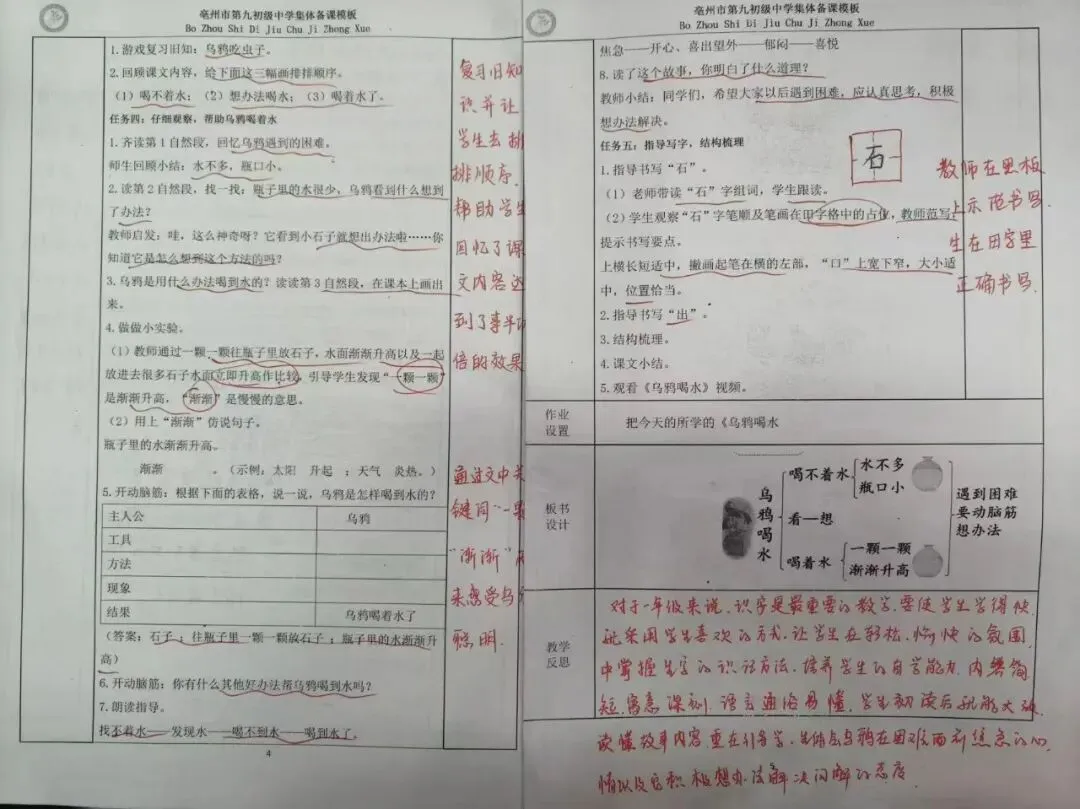 亳州市第九初级中学集体备课模板
Bo Zhou Shi Di Jiu Chu Ji Zhong Xue
1.游戏复习旧知：乌鸦吃虫子。
2.回顾课文内容，给下面这三幅画排排顺序。
（1）喝不着水；（2）想办法喝水；（3）喝着水了。
任务四：仔细观察，帮助乌鸦喝着水
1.齐读第1自然段，回忆乌鸦遇到的困难。
师生回顾小结：水不多，瓶口小。
2.读第2自然段，找一找：瓶子里的水很少，乌鸦看到什么想到
了办法？
教师启发：哇，这么神奇呀？它看到小石子就想出办法啦……你
知道它是怎么想到这个方法的吗？
3.乌鸦是用什么办法喝到水的？读读第3自然段，在课本上画出
来。
4.做做小实验。
（1）教师通过一颗一颗往瓶子里放石子，水面渐渐升高以及一起
放进去很多石子水面立即升高作比较，引导学生发现“一颗一颗”
是渐渐升高，“渐渐”是慢慢的意思。
（2）用上“渐渐”仿说句子。
瓶子里的水渐渐升高。
渐渐 。（示例：太阳 升起 ；天气 炎热。）
5.开动脑筋：根据下面的表格，说一说，乌鸦是怎样喝到水的？
主人公 乌鸦
工具
方法
现象
结果 乌鸦喝着水了
（答案：石子；往瓶子里一颗一颗放石子；瓶子里的水渐渐升
高）
6.开动脑筋：你有什么其他好办法帮乌鸦喝到水吗？
7.朗读指导。
找不着水——发现水——喝不到水——喝到水了。
4
复习旧知
识并让
学生去排
排顺序.
帮助学生
回忆了课
文内容达
到了事半功
倍的效果
通过文中关
键词“一颗
“渐渐”
来感受乌
聪明.
亳州市第九初级中学集体备课模板
Bo Zhou Shi Di Jiu Chu Ji Zhong Xue
焦急——开心、喜出望外——郁闷——喜悦
8.读了这个故事，你明白了什么道理？
教师小结：同学们，希望大家以后遇到困难，应认真思考，积极
想办法解决。
任务五：指导写字，结构梳理
1.指导书写“石”。
（1）老师带读“石”字组词，学生跟读。
（2）学生观察“石”字笔顺及笔画在田字格中的占位，教师范写，
提示书写要点。
上横长短适中，撇画起笔在横的左部，“口”上宽下窄，大小适
中，位置恰当。
2.指导书写“出”。
3.结构梳理。
4.课文小结。
5.观看《乌鸦喝水》视频。
石
教师在黑板
上示范书写.
生在田字里
正确书写.
作业
设置
把今天的所学的《乌鸦喝水
板书
设计
乌鸦喝水
喝不着水
水不多
瓶口小
看—想
喝着水
一颗一颗
渐渐升高
遇到困难
要动脑筋
想办法
教学
反思
对于一年级来说，识字是最重要的教学，要使学生学得快，
就采用学生喜欢的方式，让学生在轻松、愉快的氛围
中掌握生字的识记方法，培养学生的自学能力，内容简
短，寓意深刻，语言通俗易懂，学生初读后就能大致
读懂故事内容，重在引导学生体会乌鸦在困难面前焦急的心
情以及它积极想办法解决问题的态度